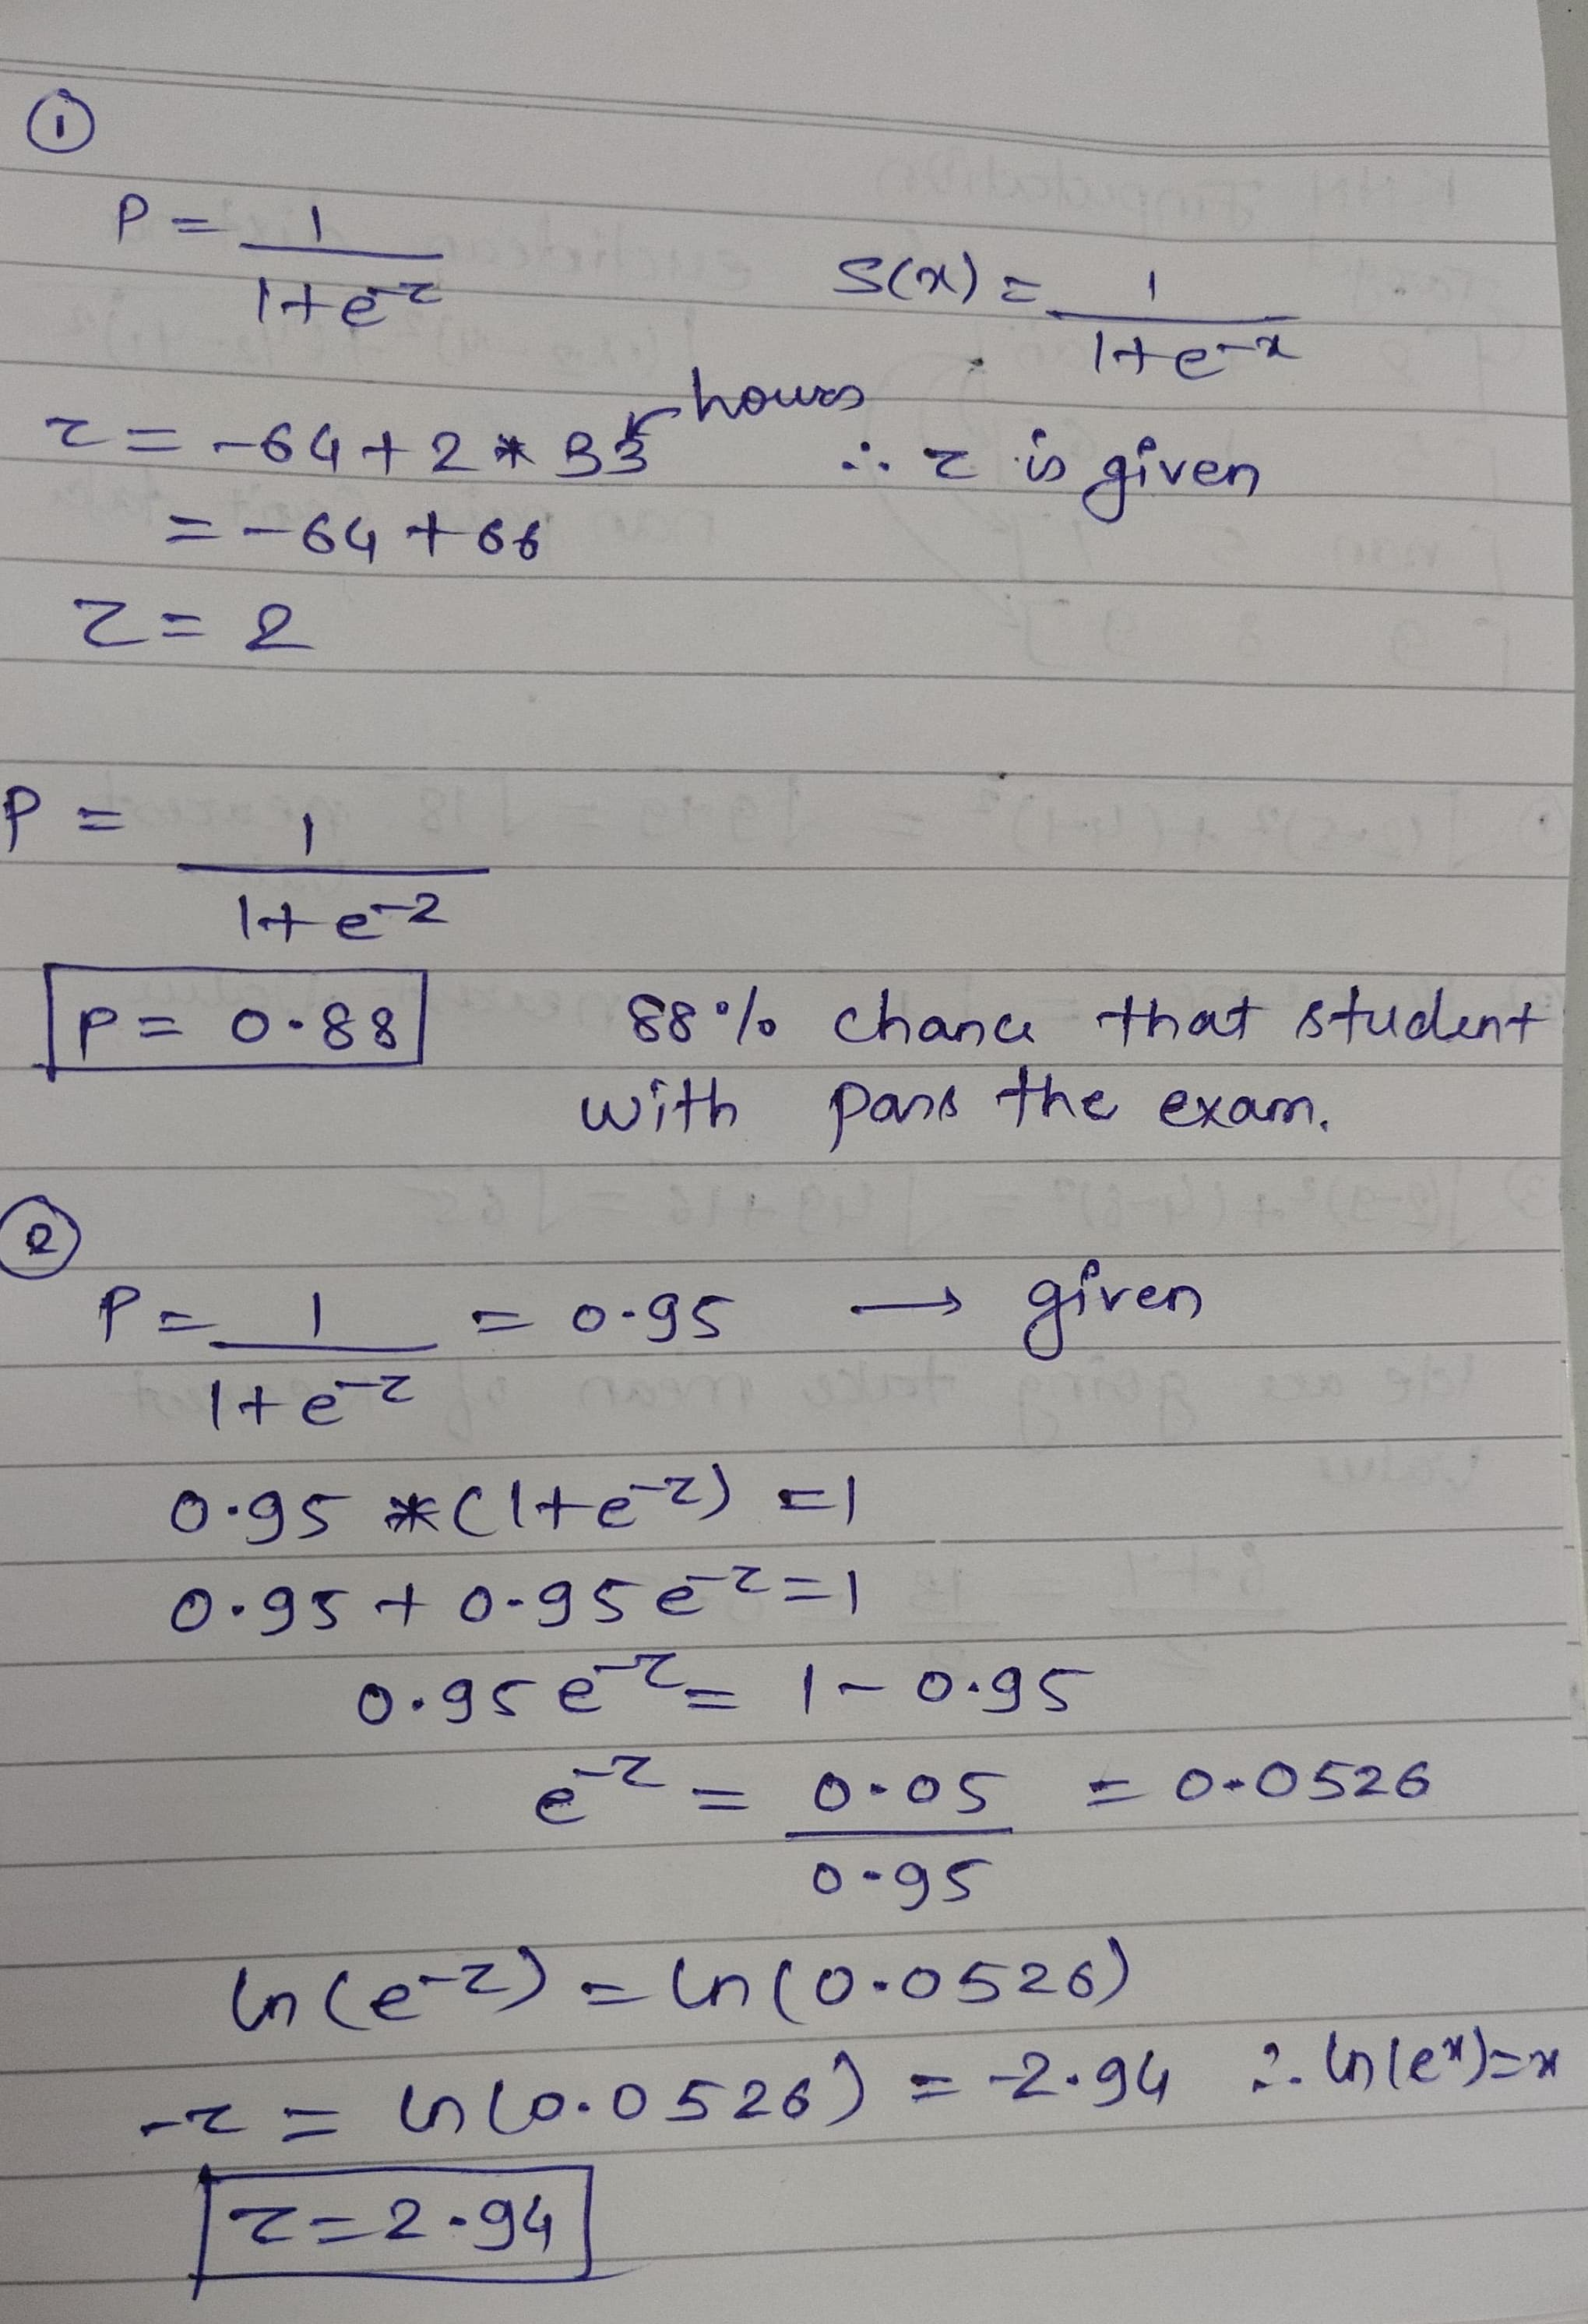 ①
P = 1 / (1+e^-z)
S(x) = 1 / (1+e^-x)
hours
z = -64 + 2 * 33 ∴ z is given
= -64 + 66
z = 2
P = 1 / (1+e^-2)
P = 0.88 88% chance that student
with pass the exam.
②
P = 1 / (1+e^-z) = 0.95 → given
0.95 * (1+e^-z) = 1
0.95 + 0.95 e^-z = 1
0.95 e^-z = 1 - 0.95
e^-z = 0.05 / 0.95 = 0.0526
ln(e^-z) = ln(0.0526)
-z = ln(0.0526) = -2.94 ∴ ln(e^x) = x
z = 2.94